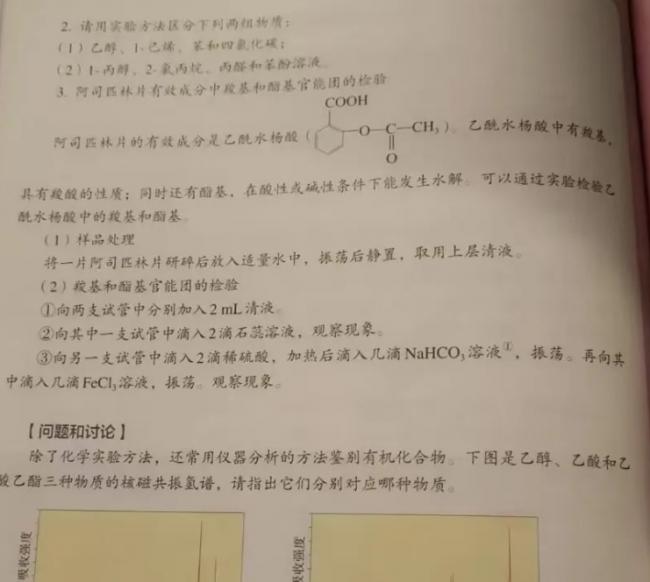 2. 请用实验方法区分下列两组物质：
（1）乙醇、1-己烯、苯和四氯化碳；
（2）1-丙醇、2-氯丙烷、丙醛和苯酚溶液。
3. 阿司匹林片有效成分中羧基和酯基官能团的检验
COOH
阿司匹林片的有效成分是乙酰水杨酸（ O—C—CH₃）。乙酰水杨酸中有羧基，
O
具有羧酸的性质；同时还有酯基，在酸性或碱性条件下能发生水解。可以通过实验检验乙
酰水杨酸中的羧基和酯基。
（1）样品处理
将一片阿司匹林片研碎后放入适量水中，振荡后静置，取用上层清液。
（2）羧基和酯基官能团的检验
①向两支试管中分别加入2 mL清液。
②向其中一支试管中滴入2滴石蕊溶液，观察现象。
③向另一支试管中滴入2滴稀硫酸，加热后滴入几滴NaHCO₃溶液①，振荡。再向其
中滴入几滴FeCl₃溶液，振荡。观察现象。
【问题和讨论】
除了化学实验方法，还常用仪器分析的方法鉴别有机化合物。下图是乙醇、乙酸和乙
酸乙酯三种物质的核磁共振氢谱，请指出它们分别对应哪种物质。
吸收强度
吸收强度